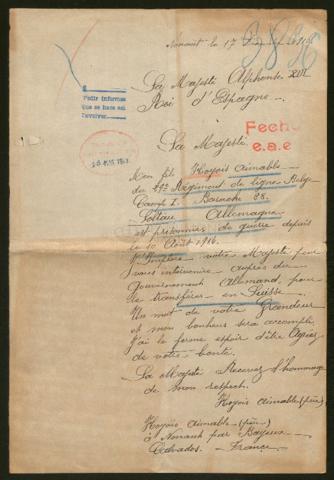 Nonant le 17
Sa Majesté Alphonse XIII
Roi d'Espagne
Pedir informes
que se hace así
Sa Majesté
Fecho
e.a.e
Mon fils Hoyois Aimable
du Régiment de ligne Belge
Camp Z. Baracke 88.
Soltau Allemagne
est prisonnier de guerre depuis
le 10 Août 1916.
J'implore votre Majesté pour
vous intervenir auprès du
Gouvernement Allemand pour
le transférer en Suisse
Un mot de votre Grandeur
et mon bonheur sera accompli
J'ai le ferme espoir d'être Agréé
de votre bonté.
Sa Majesté Recevez l'hommage
de mon respect.
Hoyois Aimable (père)
Hoyois Aimable (père)
à Nonant par Bayeux
Calvados. France